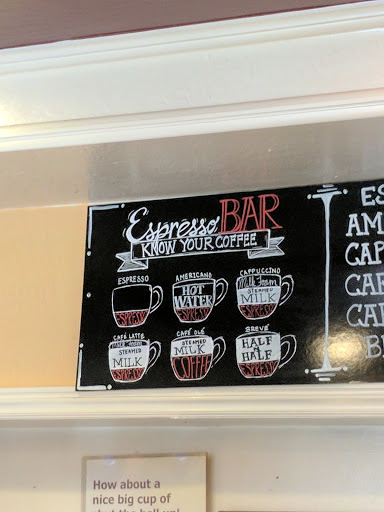 Espresso BAR
KNOW YOUR COFFEE
ESPRESSO
ESPRESSO
AMERICANO
HOT
WATER
ESPRESSO
CAPPUCCINO
Milk Foam
STEAMED
MILK
ESPRESSO
CAFÉ LATTE
Milk Foam
STEAMED
MILK
ESPRESSO
CAFÉ OLÉ
STEAMED
MILK
COFFEE
BREVÉ
HALF
&
HALF
ESPRESSO
ES
AM
CAP
CA
CA
B
How about a
nice big cup of